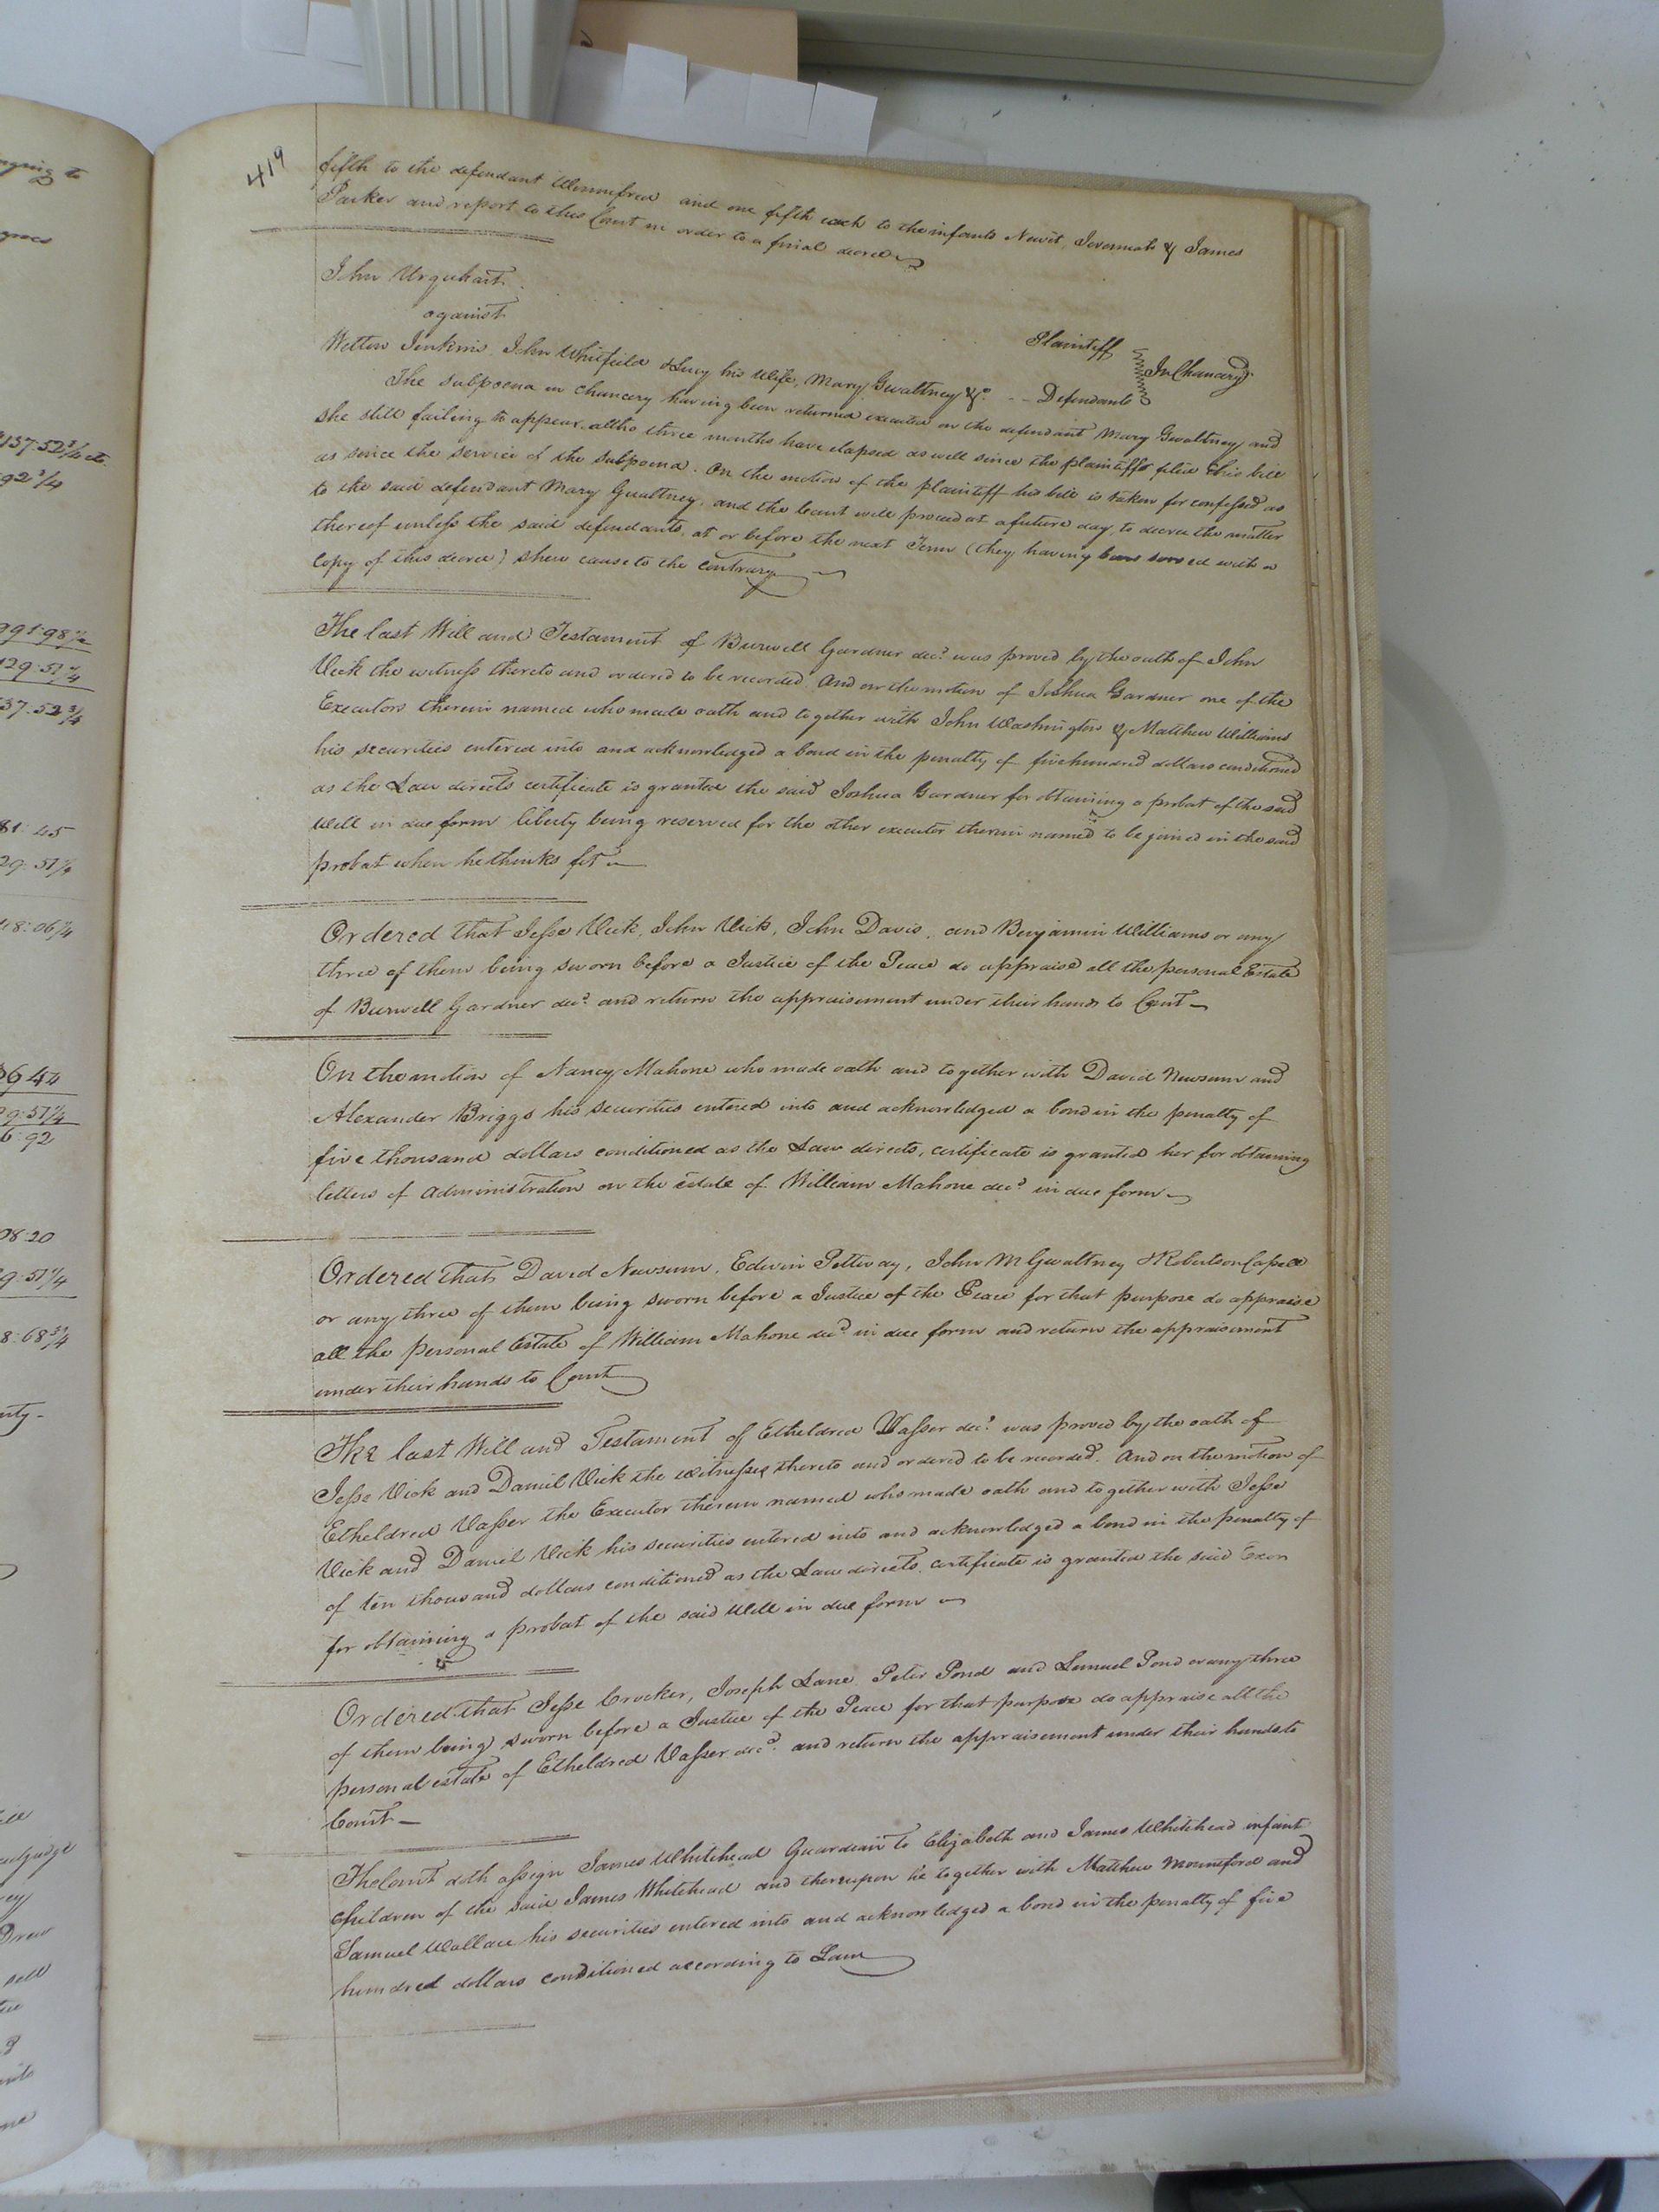 419
fifth to the defendant Winnifred and one fifth each to the infants Newit, Jeremiah & James
Parker and report to this Court in order to a final decree
John Urquhart
against
Plaintiff
In Chancery
Jenkins, John Whitfield & Lucy his Wife, Mary Gwaltney &c. -- Defendants
The subpoena in Chancery having been returned executed on the defendant Mary Gwaltney and
she still failing to appear altho three months have elapsed as well since the plaintiff filed his bill
as since the service of the subpoena. On the motion of the plaintiff his bill is taken for confessed as
to the said defendant Mary Gwaltney, and the Court will proceed at a future day, to decree the matter
thereof unless the said defendants, at or before the next Term (they having been served with a
Copy of this decree) shew cause to the contrary
The last Will and Testament of Burwell Gardner decd. was proved by the oath of John
Vick the witness thereto and ordered to be recorded. And on the motion of Joshua Gardner one of the
Executors therein named who made oath and together with John Washington & Matthew Williams
his securities entered into and acknowledged a bond in the penalty of five hundred dollars conditioned
as the Law directs certificate is granted the said Joshua Gardner for obtaining a probat of the said
Will in due form liberty being reserved for the other executor therein named to be joined in the said
probat when he thinks fit
Ordered that Jesse Vick, John Vick, John Davis, and Benjamin Williams or any
three of them being sworn before a Justice of the Peace do appraise all the personal Estate
of Burwell Gardner decd. and return the appraisement under their hands to Court
On the motion of Nancy Mahone who made oath and together with David Newsum and
Alexander Briggs his securities entered into and acknowledged a bond in the penalty of
five thousand dollars conditioned as the Law directs, certificate is granted her for obtaining
letters of administration on the estate of William Mahone decd. in due form
Ordered that David Newsum, Edwin Pettway, John M Gwaltney & Robertson Capell
or any three of them being sworn before a Justice of the Peace for that purpose do appraise
all the personal Estate of William Mahone decd. in due form and return the appraisement
under their hands to Court
The last Will and Testament of Etheldred Vasser decd. was proved by the oath of
Jesse Vick and Daniel Vick the witnesses thereto and ordered to be recorded. And on the motion of
Etheldred Vasser the Executor therein named who made oath and together with Jesse
Vick and Daniel Vick his securities entered into and acknowledged a bond in the penalty of
of ten thousand dollars conditioned as the Law directs, certificate is granted the said Exor
for obtaining a probat of the said Will in due form
Ordered that Jesse Crocker, Joseph Lane Peter Pond and Lemuel Pond or any three
of them being sworn before a Justice of the Peace for that purpose do appraise all the
personal estate of Etheldred Vasser decd. and return the appraisement under their hands to
Court
The Court doth assign James Whitehead Guardian to Elizabeth and James Whitehead infant
children of the said James Whitehead and thereupon he together with Matthew Mounsford and
Samuel Wallace his securities entered into and acknowledged a bond in the penalty of five
hundred dollars conditioned according to Law